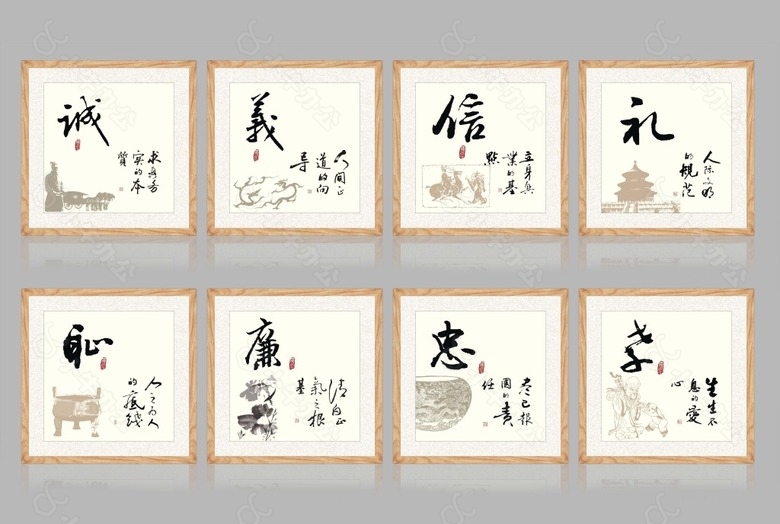 诚
求真务
实的本
質
義
人间正
道的向
导
信
立身興
業的基
點
礼
人际文明
的規范
恥
人之为人
的底线
廉
清白正
氣之根
基
忠
尽己报
國的責
任
孝
生生不
息的愛
心